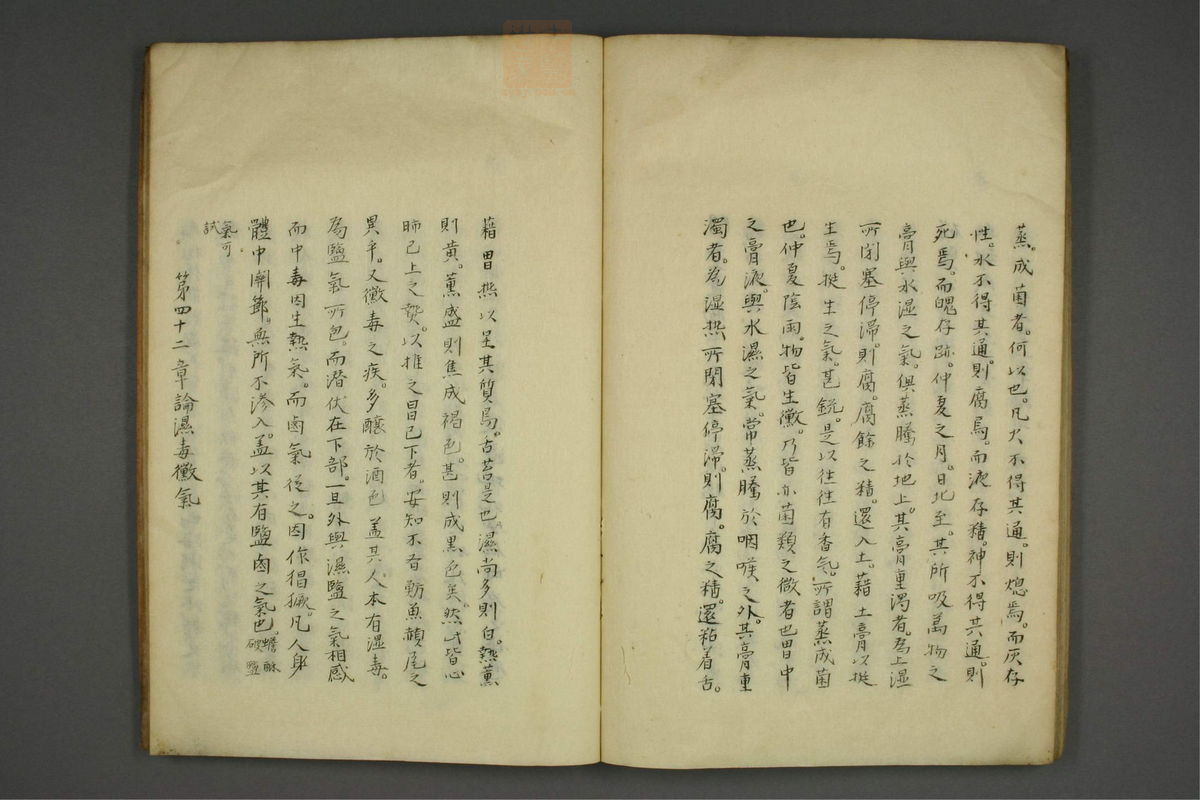 蒸成菌者。何以也。凡火不得其通。則熄焉。而灰存
性。水不得其通。則腐焉。而液存稸。神不得其通。則
死焉。而魄存跡。仲夏之月。日北至。其所吸萬物之
膏與水湿之氣。俱蒸騰於地上。其膏重濁者。為上湿
所閉塞停滞。則腐。腐餘之稸。還入土。藉土膏以挺
生焉。挺生之氣。甚鋭。是以往往有香気。所謂蒸成菌
也。仲夏陰雨。物皆生黴。乃皆亦菌類之微者也胃中
之膏液。與水濕之氣。常蒸騰於咽喉之外。其膏重
濁者。為湿热所閉塞停滞。則腐。腐之稸。還粘着舌。
藉胃热以呈其質焉。舌苔是也濕尚多則白。熱薫
則黄。薫盛則焦成褐色。甚則成黒色矣。然此皆心
肺已上之爇。以推之胃已下者。安知不有魴魚赬尾之
異乎。又黴毒之疾。多醸於酒色盖其人本有湿毒。
為鹽氣所包。而潜伏在下部。一旦外與濕鹽之氣相感
而中毒因生熱氣。而鹵氣從之。因作猖獗。凡人身
體中関節。無所不滲入。盖以其有鹽鹵之氣也。蟾酥破鹽
氣可試。
第四十二章論濕毒黴氣